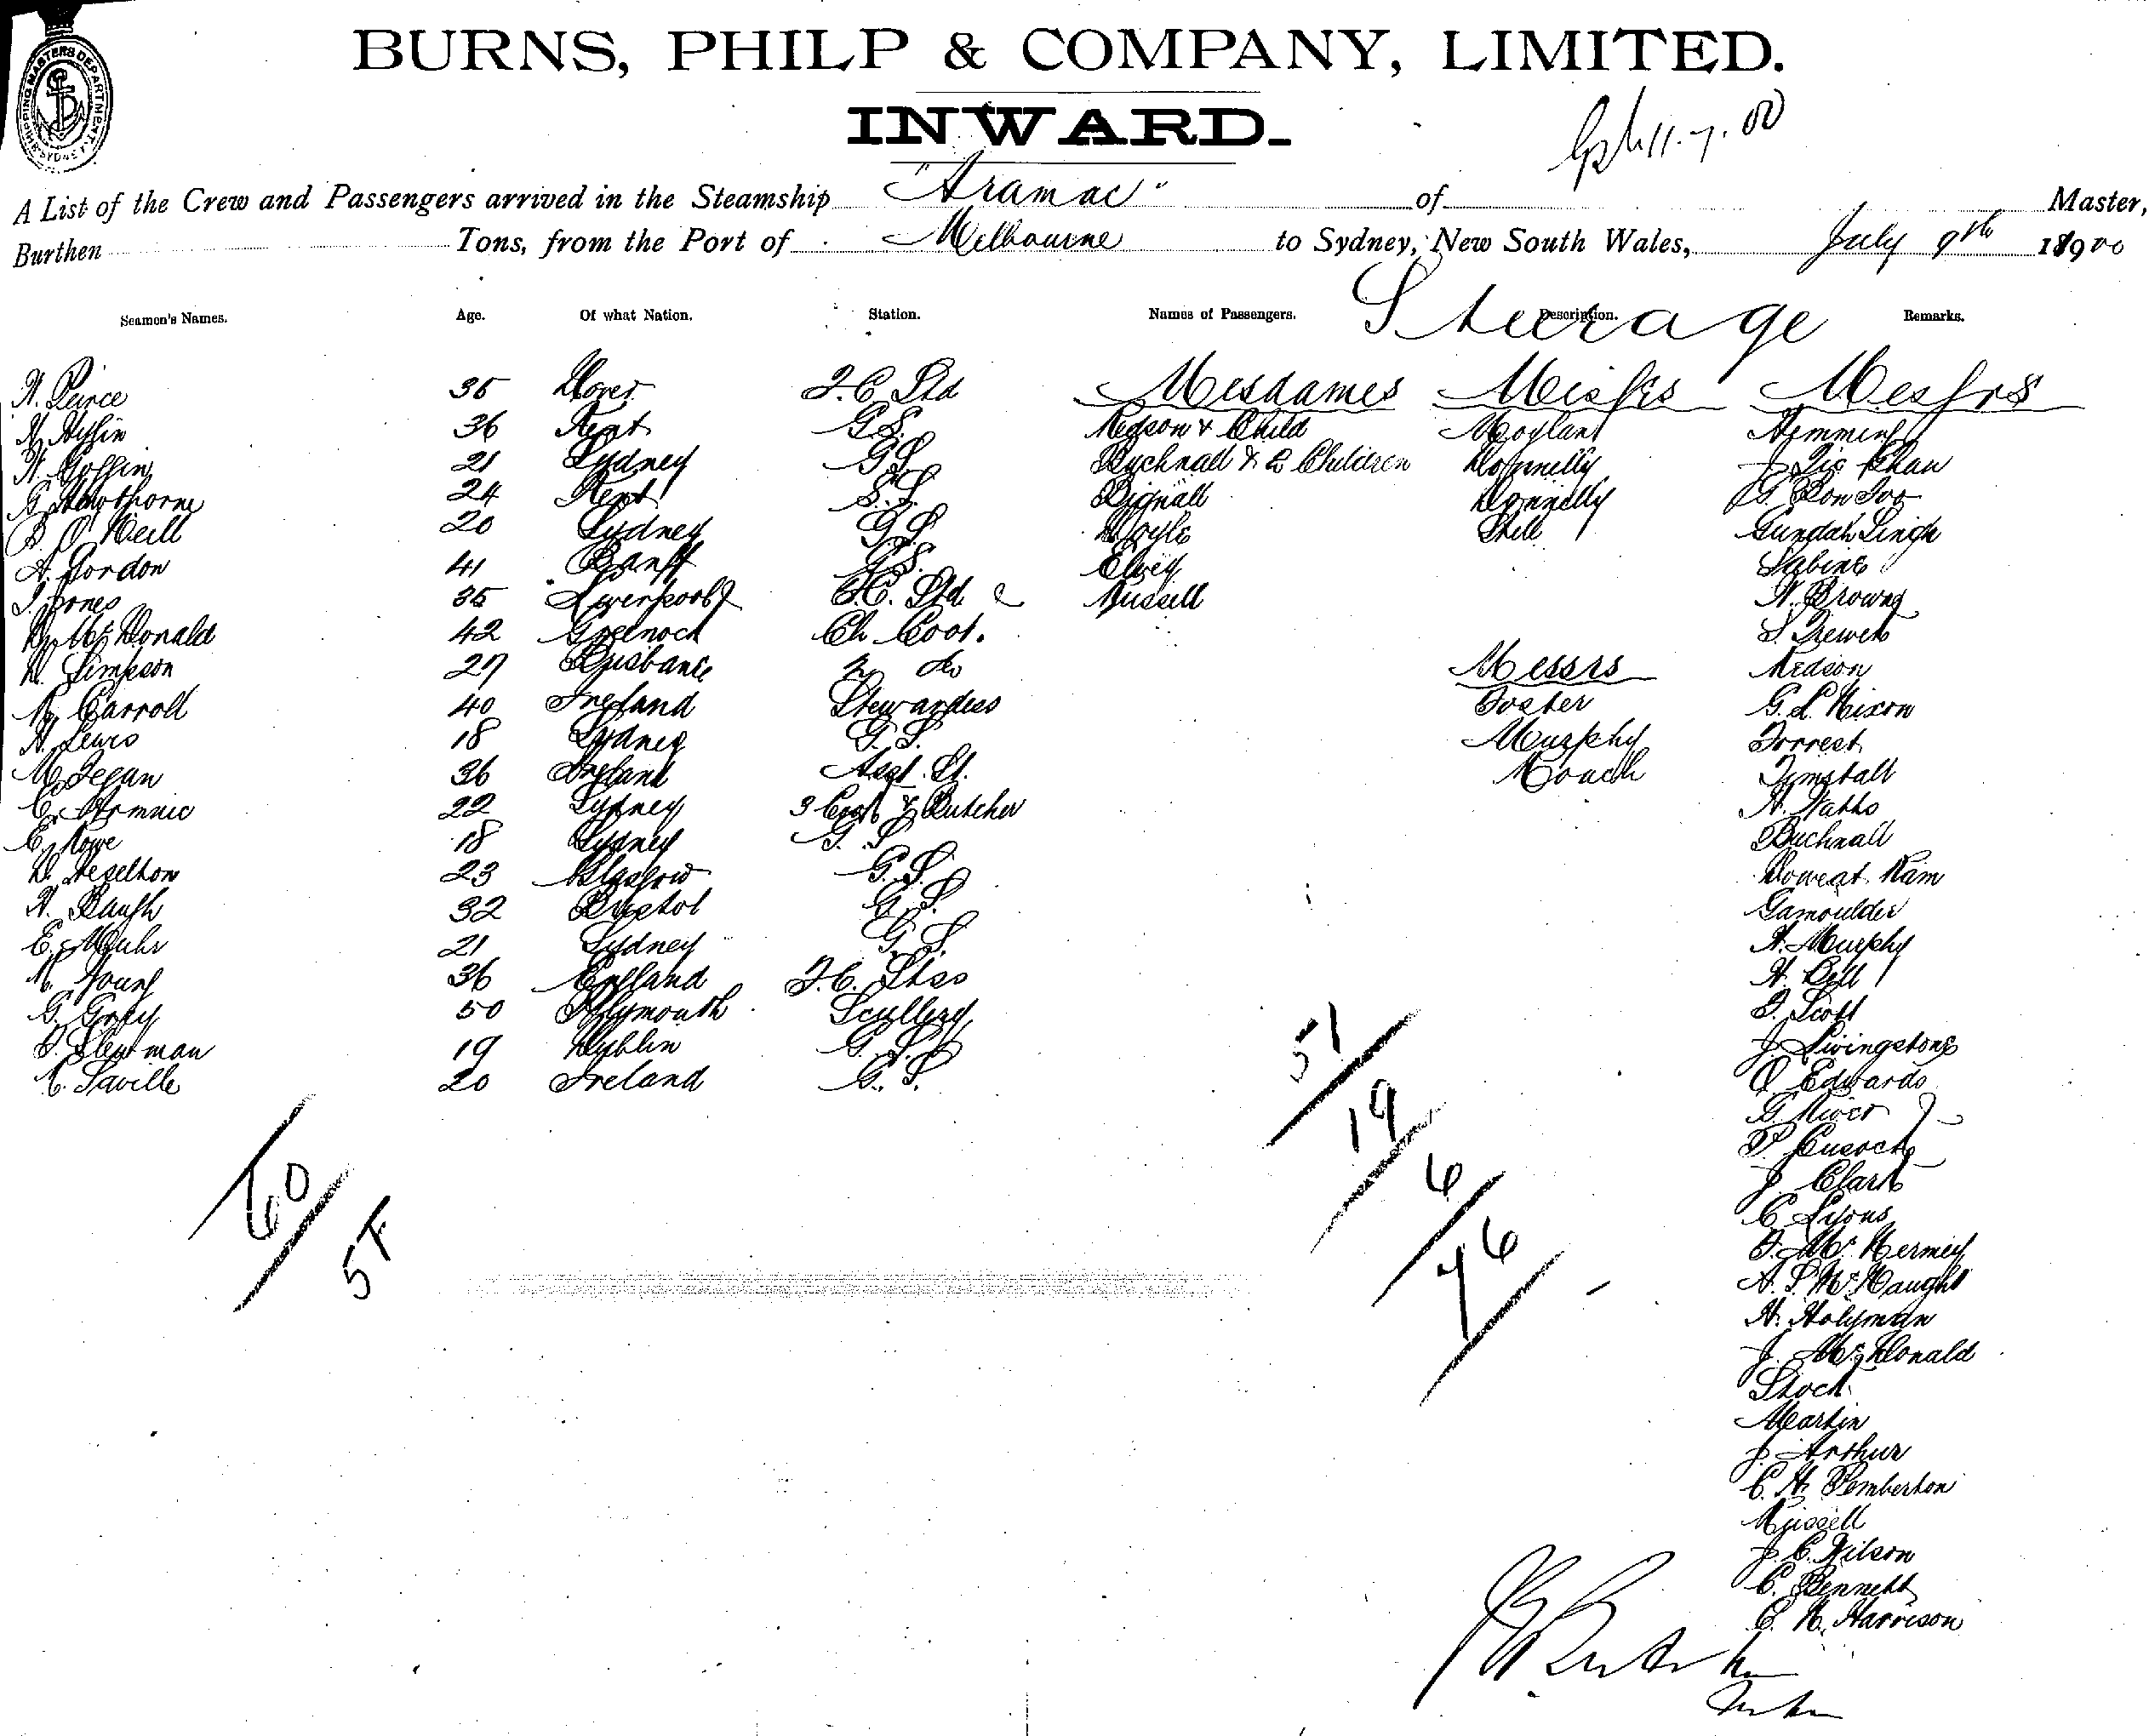 SHIPPING MASTERS DEPARTMENT SYDNEY
BURNS, PHILP & COMPANY, LIMITED.
INWARD.
11.7.00
A List of the Crew and Passengers arrived in the Steamship "Aramac" of Master,
Burthen Tons, from the Port of Melbourne to Sydney, New South Wales, July 9th 1900
Seamen's Names. Age. Of what Nation. Station. Names of Passengers. Description. Remarks.
Steerage
Mesdames Misses Messrs
W. Peirce 35 Dover F.C. Std Medson & Child Moylan Hemming
36 Kent G.S. Buchnall & 2 Children Donnelly J. Tie Chan
W. Goffin 21 Sydney G.S. Bignall Donnelly
G. Hawthorne 24 Kent S.S. Doyle Still Gundah Singh
O'Neill 20 Sydney G.S. Elvey Sabine
A. Gordon 41 Banff G.S. Russell W. Browne
J. Jones 35 Liverpool F.C. Std S. Trewek
D. McDonald 42 Greenock Ch Cook. Messrs Medson
D. Simpson 27 Brisbane 2 do Foster G. L. Nixon
Carroll 40 Ireland Stewardess Murphy Forrest
H. Lewis 18 Sydney G.S. Roach
M. Fegan 36 Ireland Asst. St. H. Watts
C. 22 Sydney 3 Cook & Butcher Buchnall
E. Rowe 18 Sydney G.S. Doweat Ram
D. Heselton 23 Glasgow G.S. Gamoulder
H. Baugh 32 Bristol G.S. H. Murphy
E. Muhr 21 Sydney G.S. H. Bell
M. Young 36 England F.C. Stss T. Scott
G. Gray 50 Plymouth Scullery J. Livingstone
Slewman 19 Dublin G.S. Edwards
C. Saville 20 Ireland G.S. G. River
P. Cusack
J. Clark
C. Lyons
A. S. McNaught
H. Holyman
J. McDonald
Stock
Martin
J. Arthur
C. H. Pemberton
Russell
J. C. Wilson
C. Bennett
C. W. Harrison
60
5F
51
19
6
76